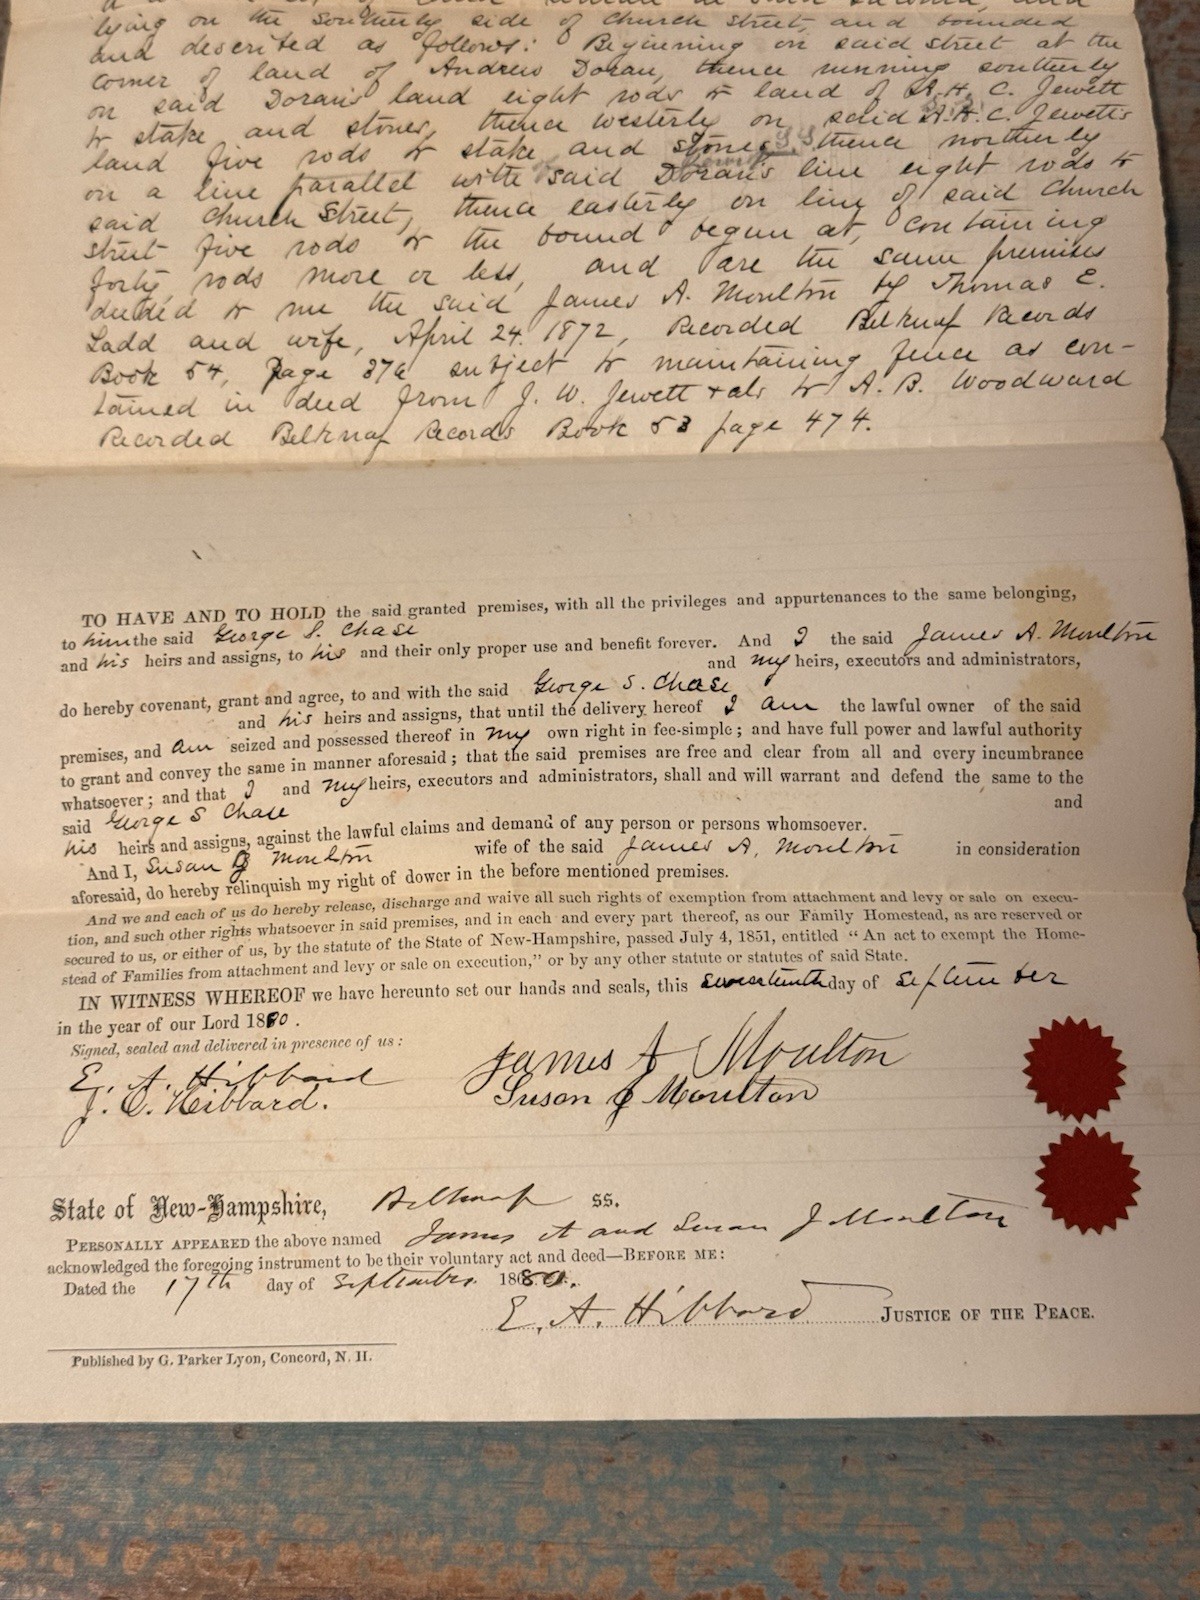 lying on the southerly side of Church street, and bounded
and described as follows: Beginning on said street at the
corner of land of Andrew Doran, thence running southerly
on said Doran's land eight rods to land of A. H. C. Jewett
to stake and stones, thence westerly on said A. H. C. Jewett's
land five rods to stake and stones, thence northerly
on a line parallel with said Doran's line eight rods to
said Church Street, thence easterly on line of said Church
street five rods to the bound begun at, containing
forty rods more or less, and are the same premises
deeded to me the said James A. Moulton by Thomas E.
Ladd and wife, April 24. 1872, Recorded Belknap Records
Book 54, Page subject to maintaining fence as con-
tained in deed from J. W. Jewett + als to A. B. Woodward
Recorded Belknap Records Book 53 page 474.
TO HAVE AND TO HOLD the said granted premises, with all the privileges and appurtenances to the same belonging,
to him the said George S. Chase
and his heirs and assigns, to his and their only proper use and benefit forever. And I the said James A. Moulton
and my heirs, executors and administrators,
do hereby covenant, grant and agree, to and with the said George S. Chase
and his heirs and assigns, that until the delivery hereof I am the lawful owner of the said
premises, and am seized and possessed thereof in my own right in fee-simple; and have full power and lawful authority
to grant and convey the same in manner aforesaid; that the said premises are free and clear from all and every incumbrance
whatsoever; and that I and my heirs, executors and administrators, shall and will warrant and defend the same to the
said George S Chase and
his heirs and assigns, against the lawful claims and demand of any person or persons whomsoever.
And I, Susan J Moulton wife of the said James A. Moulton in consideration
aforesaid, do hereby relinquish my right of dower in the before mentioned premises.
And we and each of us do hereby release, discharge and waive all such rights of exemption from attachment and levy or sale on execu-
tion, and such other rights whatsoever in said premises, and in each and every part thereof, as our Family Homestead, as are reserved or
secured to us, or either of us, by the statute of the State of New-Hampshire, passed July 4, 1851, entitled "An act to exempt the Home-
stead of Families from attachment and levy or sale on execution," or by any other statute or statutes of said State.
IN WITNESS WHEREOF we have hereunto set our hands and seals, this seventeenth day of September
in the year of our Lord 1880.
Signed, sealed and delivered in presence of us:
E. A. Hibbard James A Moulton
J. C. Hibbard. Susan J Moulton
State of New-Hampshire, Belknap ss.
PERSONALLY APPEARED the above named James A and Susan J Moulton
acknowledged the foregoing instrument to be their voluntary act and deed—BEFORE ME:
Dated the 17th day of September 1880.
E. A. Hibbard JUSTICE OF THE PEACE.
Published by G. Parker Lyon, Concord, N. H.